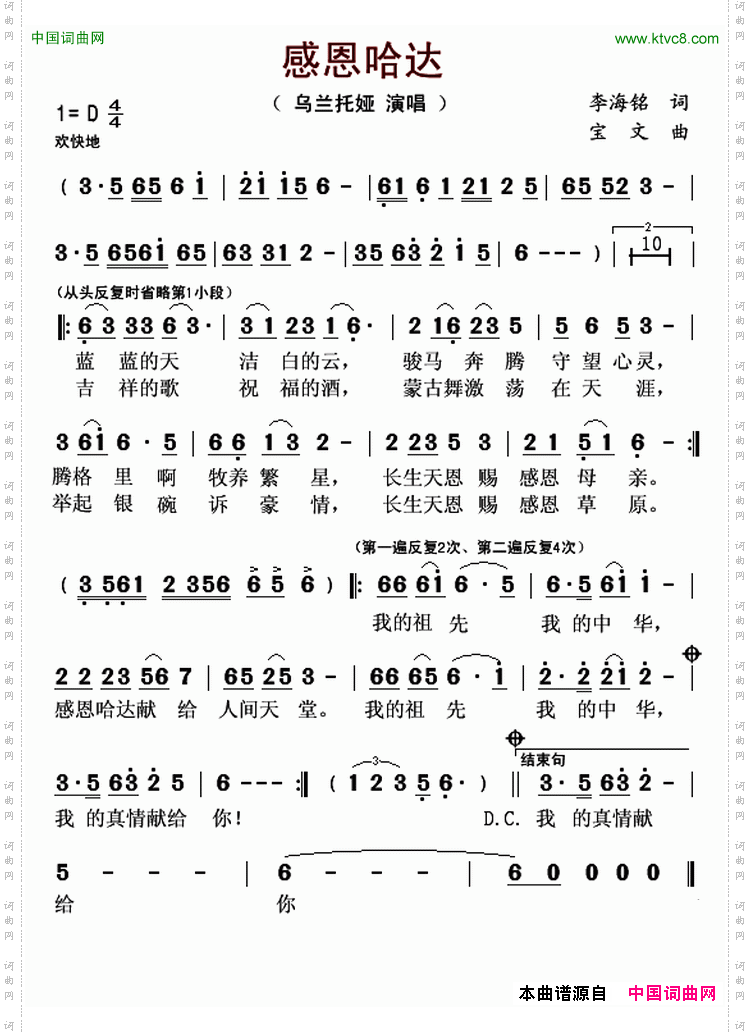 中国词曲网 www.ktvc8.com
感恩哈达
（ 乌兰托娅 演唱 ）
李海铭 词
1= D 4/4
宝 文 曲
欢快地
( 3·5 65 6 1 | 21 15 6 - | 61 6 1 21 2 5 | 65 52 3 - |
3·5 6561 65 | 63 31 2 - | 35 63 2 1 5 | 6 - - - ) | 2 10 |
（从头反复时省略第1小段）
‖: 6 3 33 6 3· | 3 1 23 1 6· | 2 16 23 5 | 5 6 53 3 - |
蓝 蓝的天 洁 白的云， 骏马 奔 腾 守 望 心灵，
吉 祥的歌 祝 福的酒， 蒙古舞激 荡 在 天 涯，
3 61 6· 5 | 6 6 1 3 2 - | 2 235 5 3 | 2 1 5 1 6 - :‖
腾格 里 啊 牧养 繁 星， 长生天恩 赐 感恩 母 亲。
举起 银 碗 诉 豪 情， 长生天恩 赐 感恩 草 原。
（第一遍反复2次、第二遍反复4次）
( 3 561 2 356 6 5 6 ) ‖: 66 61 6· 5 | 6·5 61 1 - |
我的祖 先 我 的中 华，
2 2 23 56 7 | 65 25 3 - | 66 65 6· 1 | 2·2 21 2 - |
感恩哈达献 给 人间天 堂。 我的祖 先 我 的中 华，
结束句
3·5 63 2 5 | 6 - - - :‖ ( 3 1 2 3 5 6· ) ‖ 3·5 63 2 - |
我 的真情献给 你！ D.C. 我 的真情献
5 - - - | 6 - - - | 6 0 0 0 0 ‖
给 你
本曲谱源自 中国词曲网